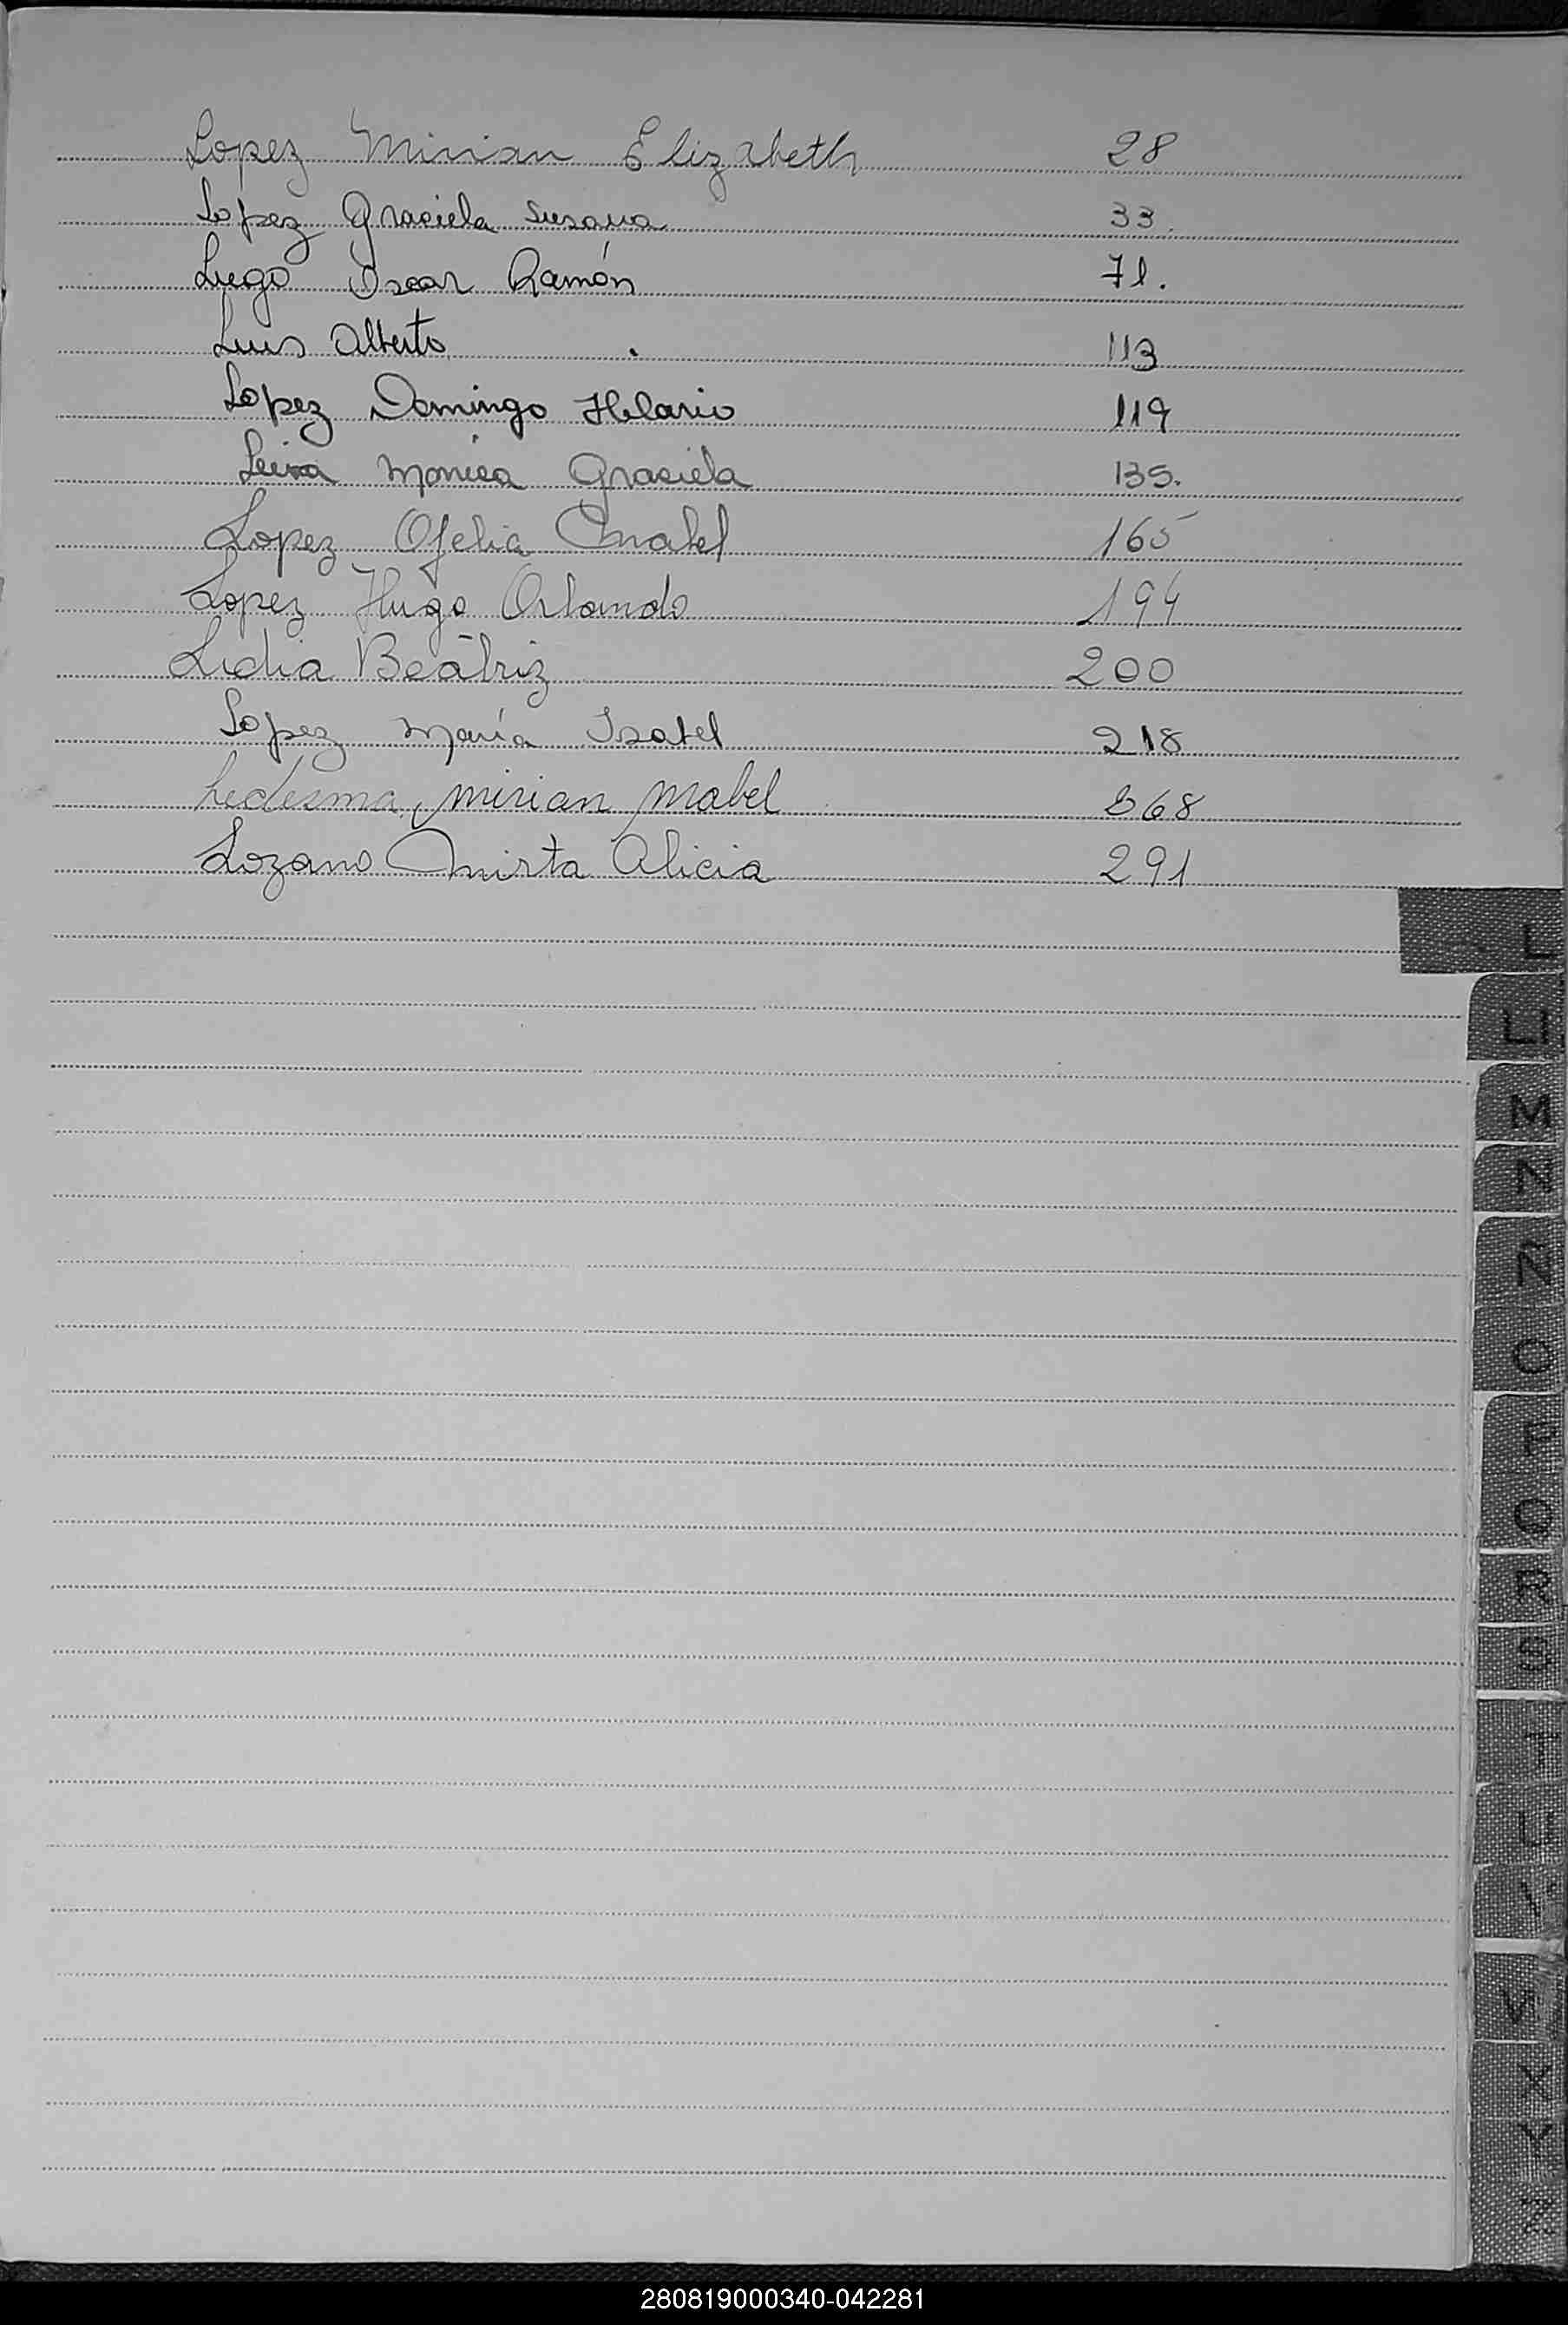 Lopez Mirian Elizabeth 28
Lopez Graciela Susana 33.
Lugo Oscar Ramón 71.
Luis Alberto . 113
Lopez Domingo Hilario 119
Leiva Monica Graciela 135.
Lopez Ofelia Mabel 165
Lopez Hugo Orlando 194
Lidia Beatriz 200
Lopez María Isabel 218
Ledesma, Mirian Mabel 268
Lozano Mirta Alicia 291
L
LL
M
N
Ñ
O
P
Q
R
S
T
U
V
W
X
Y
Z
280819000340-042281